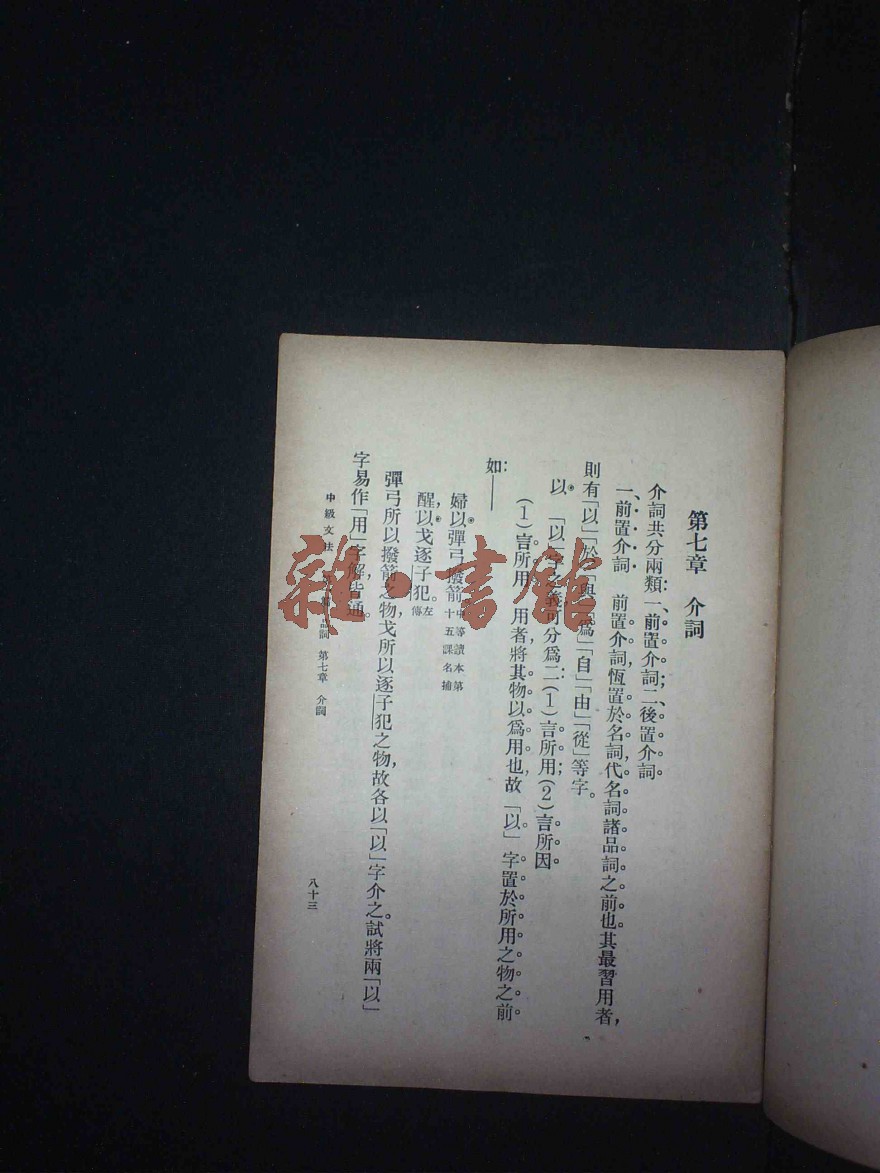 第七章　介詞
介詞共分兩類：一、前置介詞；二、後置介詞。
一、前置介詞　前置介詞，恆置於名詞，代名詞諸品詞之前也。其最習用者，
則有「以」「於」「與」「爲」「自」「由」「從」等字。
以　「以」字之義，可分爲二：(1)言所用；(2)言所因。
(1)言所用　用者，將其物以爲用也，故「以」字置於所用之物之前。
如：——
婦以彈弓撥箭 中等讀本第十五課名捕
醒，以戈逐子犯。 左傳
彈弓所以撥箭之物，戈所以逐子犯之物，故各以「以」字介之。試將兩「以」
字易作「用」字解，皆通。
中級文法 品詞 第七章 介詞
八十三
雜·書館